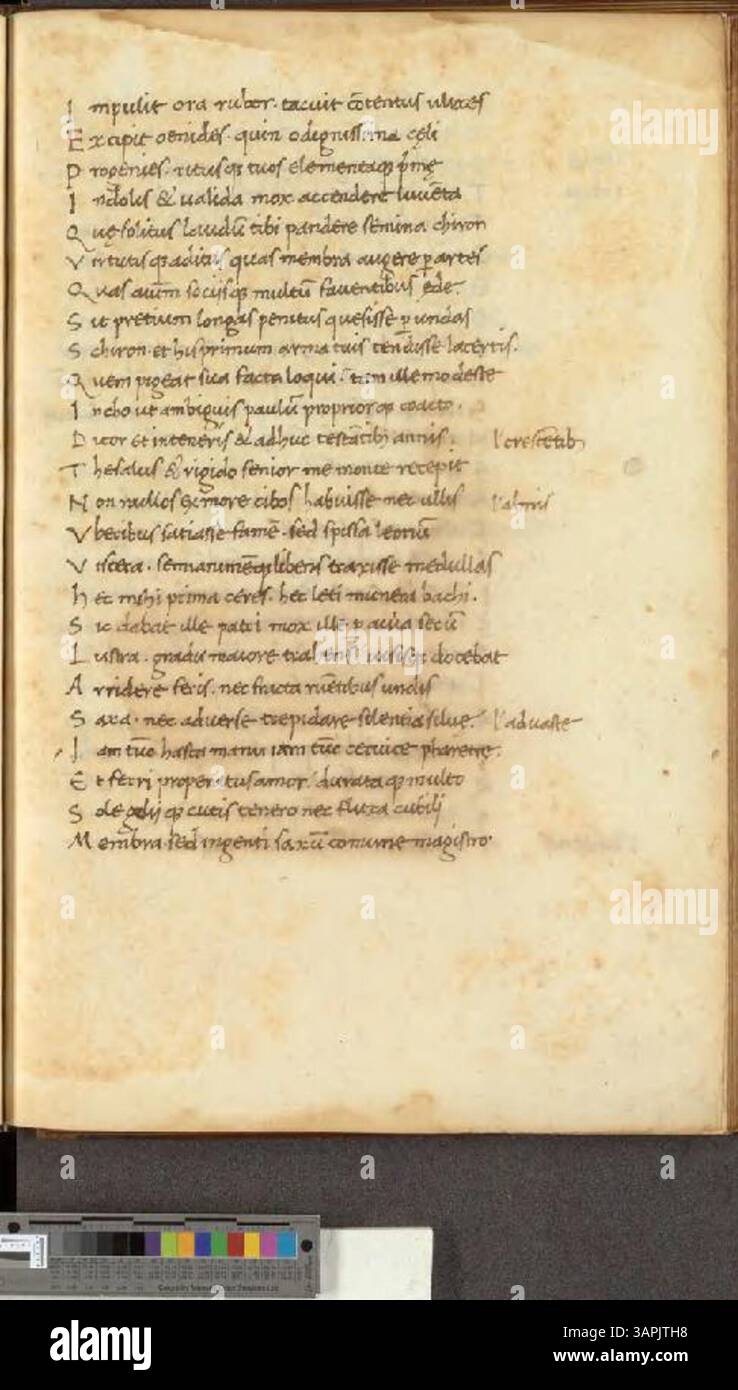 I mpulit ora rubor. tacuit cōtentus ulixes
E xcipit oenides. quin o dignissima cęli
P rogenies. ritusq; tuos elementaq; p̄mę
I ndolis & ualida mox accendere iuuēta
Q uę solitus laudū tibi pandere semina chiron
V irtutisq; aditus quas membra augere ꝑ artes
Q uas aīum sociisq; multū fauentibus ęde.
S it pretium longas penitus quesisse ꝑ undas
S chiron. et his primum arma tuis tendisse lacertis.
Q uem pigeat sua facta loqui. tum ille modeste
I ncho ut ambiguis paulū propriorq; coacto.
D icor et in teneris & adhuc crestātib; annis. l' crescētib;
T hesalus & rigido senior me monte recepit
N on ullos ex more cibos habuisse nec ullis l' almis
V beribus satiasse famē. sed spissa leonū
V iscera. semianimesq; libens traxisse medullas
h ec mihi prima ceres. hec leti munera bachi.
S ic dabat ille pater mox ille ꝑ auia secū
L ustra. gradu maiore docebat
A rridere feris. nec fracta ruētibus undis
S axa. nec aduerse trepidare silentia silue. l' ad uaste
I am tūc hasta manu iam tūc ceruice pharetre.
E t ferri properatus amor. durataq; multo
S ole geluq; cutis tenero nec fluxa cubili
M embra. sed ingenti saxū comune magistro.
alamy
Image ID: 3APJTH8
www.alamy.com